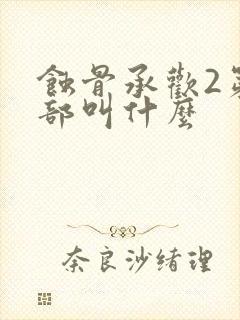 蝕骨承歡2第
部叫什麼
奈良沙緒理